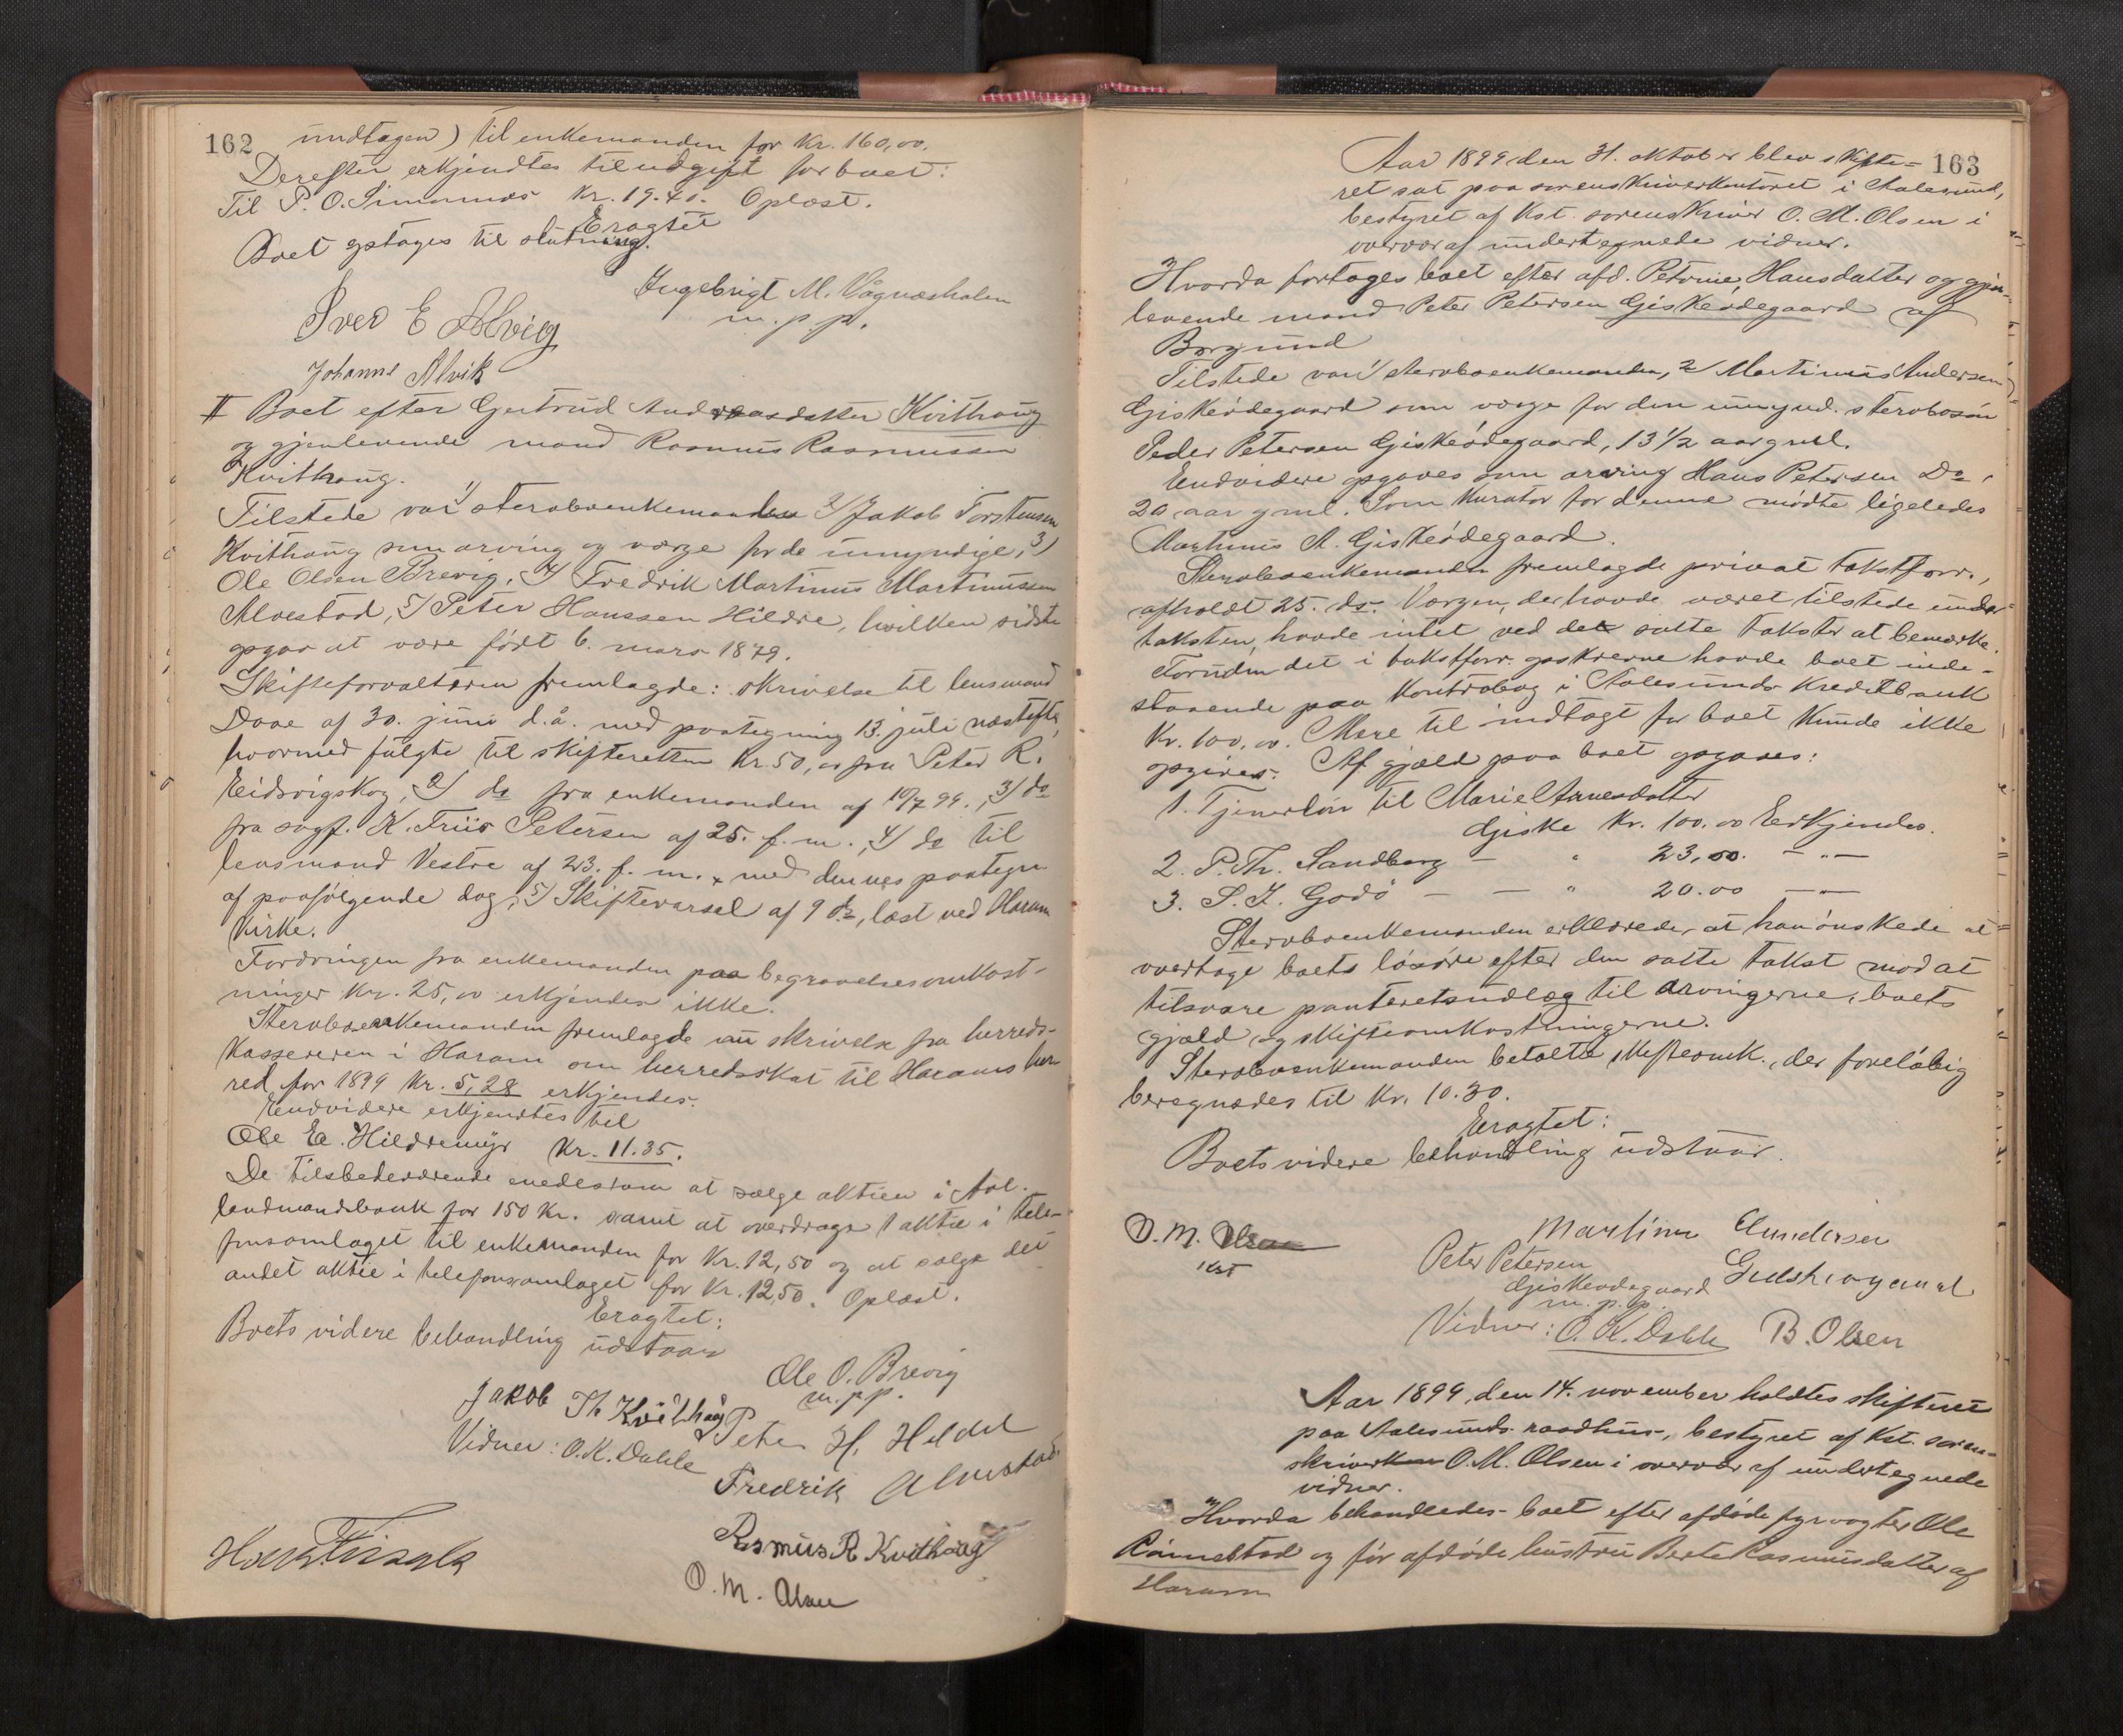 162
undtagen) til enkemanden for Kr. 160,00.
Derefter erkjendtes til udgift for boet:
Til P. O. Simonnæs Kr. 19.40. Oplæst.
Eragtet
Boet optages til slutning.
Ingebrigt M. Vågnesholen
m. p. p.
Iver E Alvig
Johanne Alvik
II Boet efter Gertrud Andreasdatter Kvithaug
og gjenlevende mand Rasmus Rasmussen
Kvithaug.
Tilstede var 1) sterboenkemanden 2) Jakob Torstensen
Kvithaug som arving og værge for de umyndige, 3)
Ole Olsen Brevig, 4) Fredrik Martinus Martinussen
Alvestad, 5) Peter Hanssen Hildre, hvilken sidste
opgav at være født 6. mars 1879.
Skifteforvalteren fremlagde: skrivelse til lensmand
Daae af 30. juni d.å. med paategning 13. juli næstefter,
hvormed fulgte til skifteretten Kr. 50,00 fra Peter R.
Eidsvigskog, 2) do fra enkemanden af 10/7 99., 3) do
fra sagf. K. Friis Petersen af 25. f. m., 4) do til
lensmand Vestre af 23. f. m. med dennes paategn.
af paafølgende dag, 5) Skiftevarsel af 9 ds, læst ved Haram
Kirke.
Fordringen fra enkemanden paa begravelsesomkost-
ninger Kr. 25,00 erkjendes ikke.
Sterboenkemanden fremlagde en skrivelse fra herreds-
kassereren i Haram om herredsskat til Harams her-
red for 1899 Kr. 5,28 erkjendes.
Endvidere erkjendtes til
Ole E. Hildremyr Kr. 11.35.
De tilstedeværende enedes om at sælge aktien i Aal.
landmandsbank for 150 Kr. samt at overdrage 1 aktie i tele-
fonsamlaget til enkemanden for Kr. 12,50 og at sælge det
andet aktie i telefonsamlaget for Kr. 12,50. Oplæst.
Eragtet:
Boets videre behandling udstaar
Ole O. Brevig
m. p. p.
Jakob Th Kvithaug
Peter H. Hildre
Vidner: O. K. Dahle
Fredrik Alvestad
Rasmus R Kvithaug
O. M. Olsen
163
Aar 1899 den 31. oktober blev skifte-
ret sat paa sorenskriverkontoret i Aalesund,
bestyret af Kst. sorenskriver O. M. Olsen i
overvær af undertegnede vidner.
Hvorda fortoges boet efter afd. Petrine Hansdatter og gjen-
levende mand Peter Petersen Giskeødegaard af
Borgund
Tilstede var 1) sterboenkemanden, 2) Martinus Andersen
Giskeødegaard som værge for den umynd. sterbosøn
Peder Petersen Giskeødegaard, 13 1/2 aar gml.
Endvidere opgaves som arving Hans Petersen Do,
20 aar gml. Som Kurator for denne mødte ligeledes
Martinus A. Giskeødegaard.
Sterboenkemanden fremlagde privat takstforr.,
afholdt 25. ds. Værgen, der havde været tilstede under
taksten, havde intet ved de satte takster at bemærke.
Foruden det i takstforr. opskrevne havde boet inde-
staaende paa Kontrabog i Aalesunds Kreditbank
Kr. 100,00. Mere til indtægt for boet kunde ikke
opgives. Af gjæld paa boet opgaves:
1. Tjenerløn til Marie Arnesdatter
Giske Kr. 100.00 Erkjendes.
2. P. Th. Sandborg — " 23,00. — " —
3. S. J. Godø — — " 20.00 — " —
Sterboenkemanden erklærede, at han ønskede at
overtage boets løsøre efter den satte takst mod at
tilsvare panteretsudlæg til arvingerne, boets
gjæld og skifteomkostningerne.
Sterboenkemanden betalte skifteomk., der foreløbig
beregnedes til Kr. 10.30.
Eragtet:
Boets videre behandling udstaar.
O. M. Olsen
kst
Martinus Andersen
Peter Petersen
Giskeødegaard
m. p. p.
Vidner: O. K. Dahle B. Olsen
Aar 1899, den 14. november holdtes skifteret
paa Aalesunds raadhus, bestyret af Kst. soren-
skriver O. M. Olsen i overvær af undertegnede
vidner.
Hvorda behandledes boet efter afdøde fyrvogter Ole
Rønnestad og før afdøde hustru Berte Rasmusdatter af
Haram